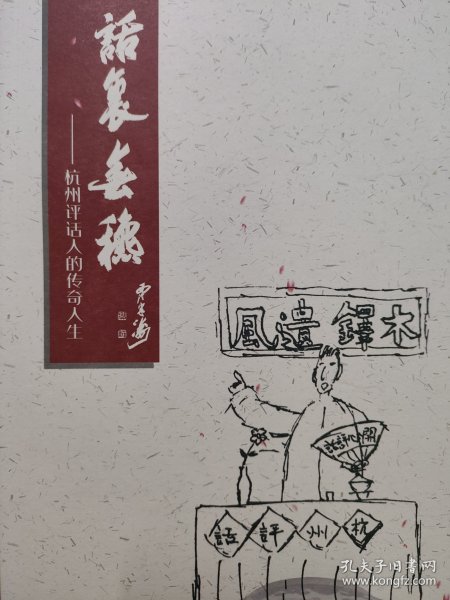 話裏春秋
——杭州评话人的传奇人生
木鐸遺風
開心評話
杭州評話
孔夫子旧书网
www.kongfz.com